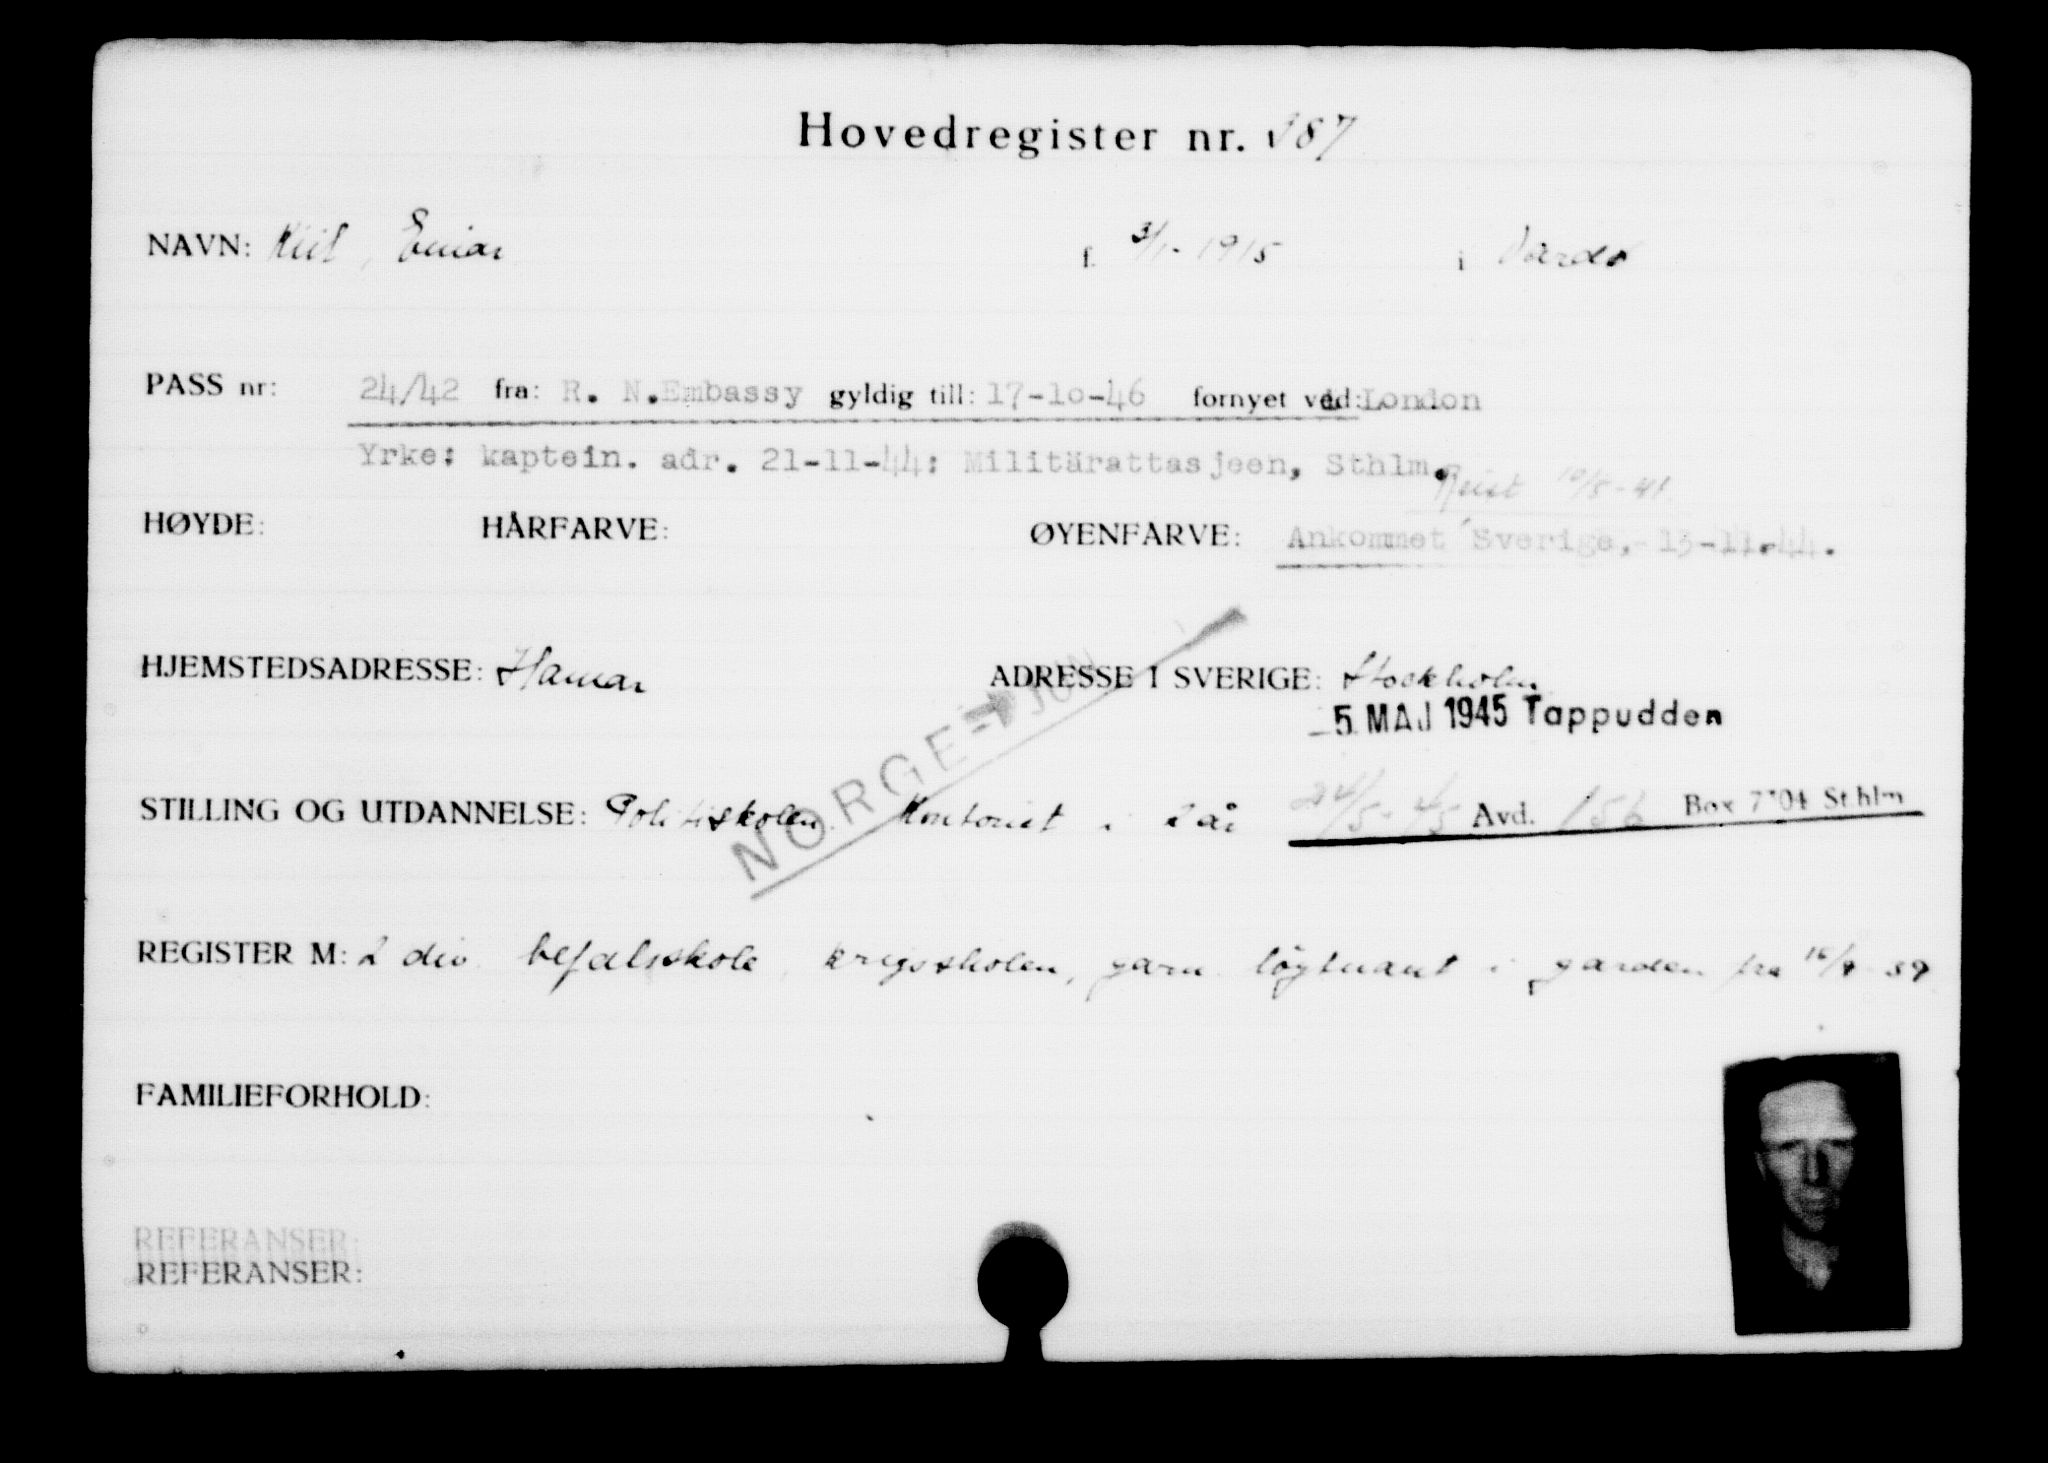 Hovedregister nr. 387
NAVN: Kiil, Einar f. 3/1-1915 i Vardø
PASS nr: 24/42 fra: R. N.Embassy gyldig till: 17-10-46 fornyet ved: London
Yrke: kaptein. adr. 21-11-44: Militärattasjeen, Sthlm.
Reist 10/5-41
HØYDE: HÅRFARVE: ØYENFARVE: Ankommet Sverige, 13-11-44.
HJEMSTEDSADRESSE: Hamar ADRESSE I SVERIGE: Stockholm
-5 MAJ 1945 Tappudden
NORGE - JUN
STILLING OG UTDANNELSE: Politiskolen. Kontorist i 2 år 24/5-45 Avd. 156 Box 7704 Sthlm
REGISTER M: 2 div befalsskole, krigsskolen, garn. løytnant i garden fra 39
FAMILIEFORHOLD:
REFERANSER:
REFERANSER: